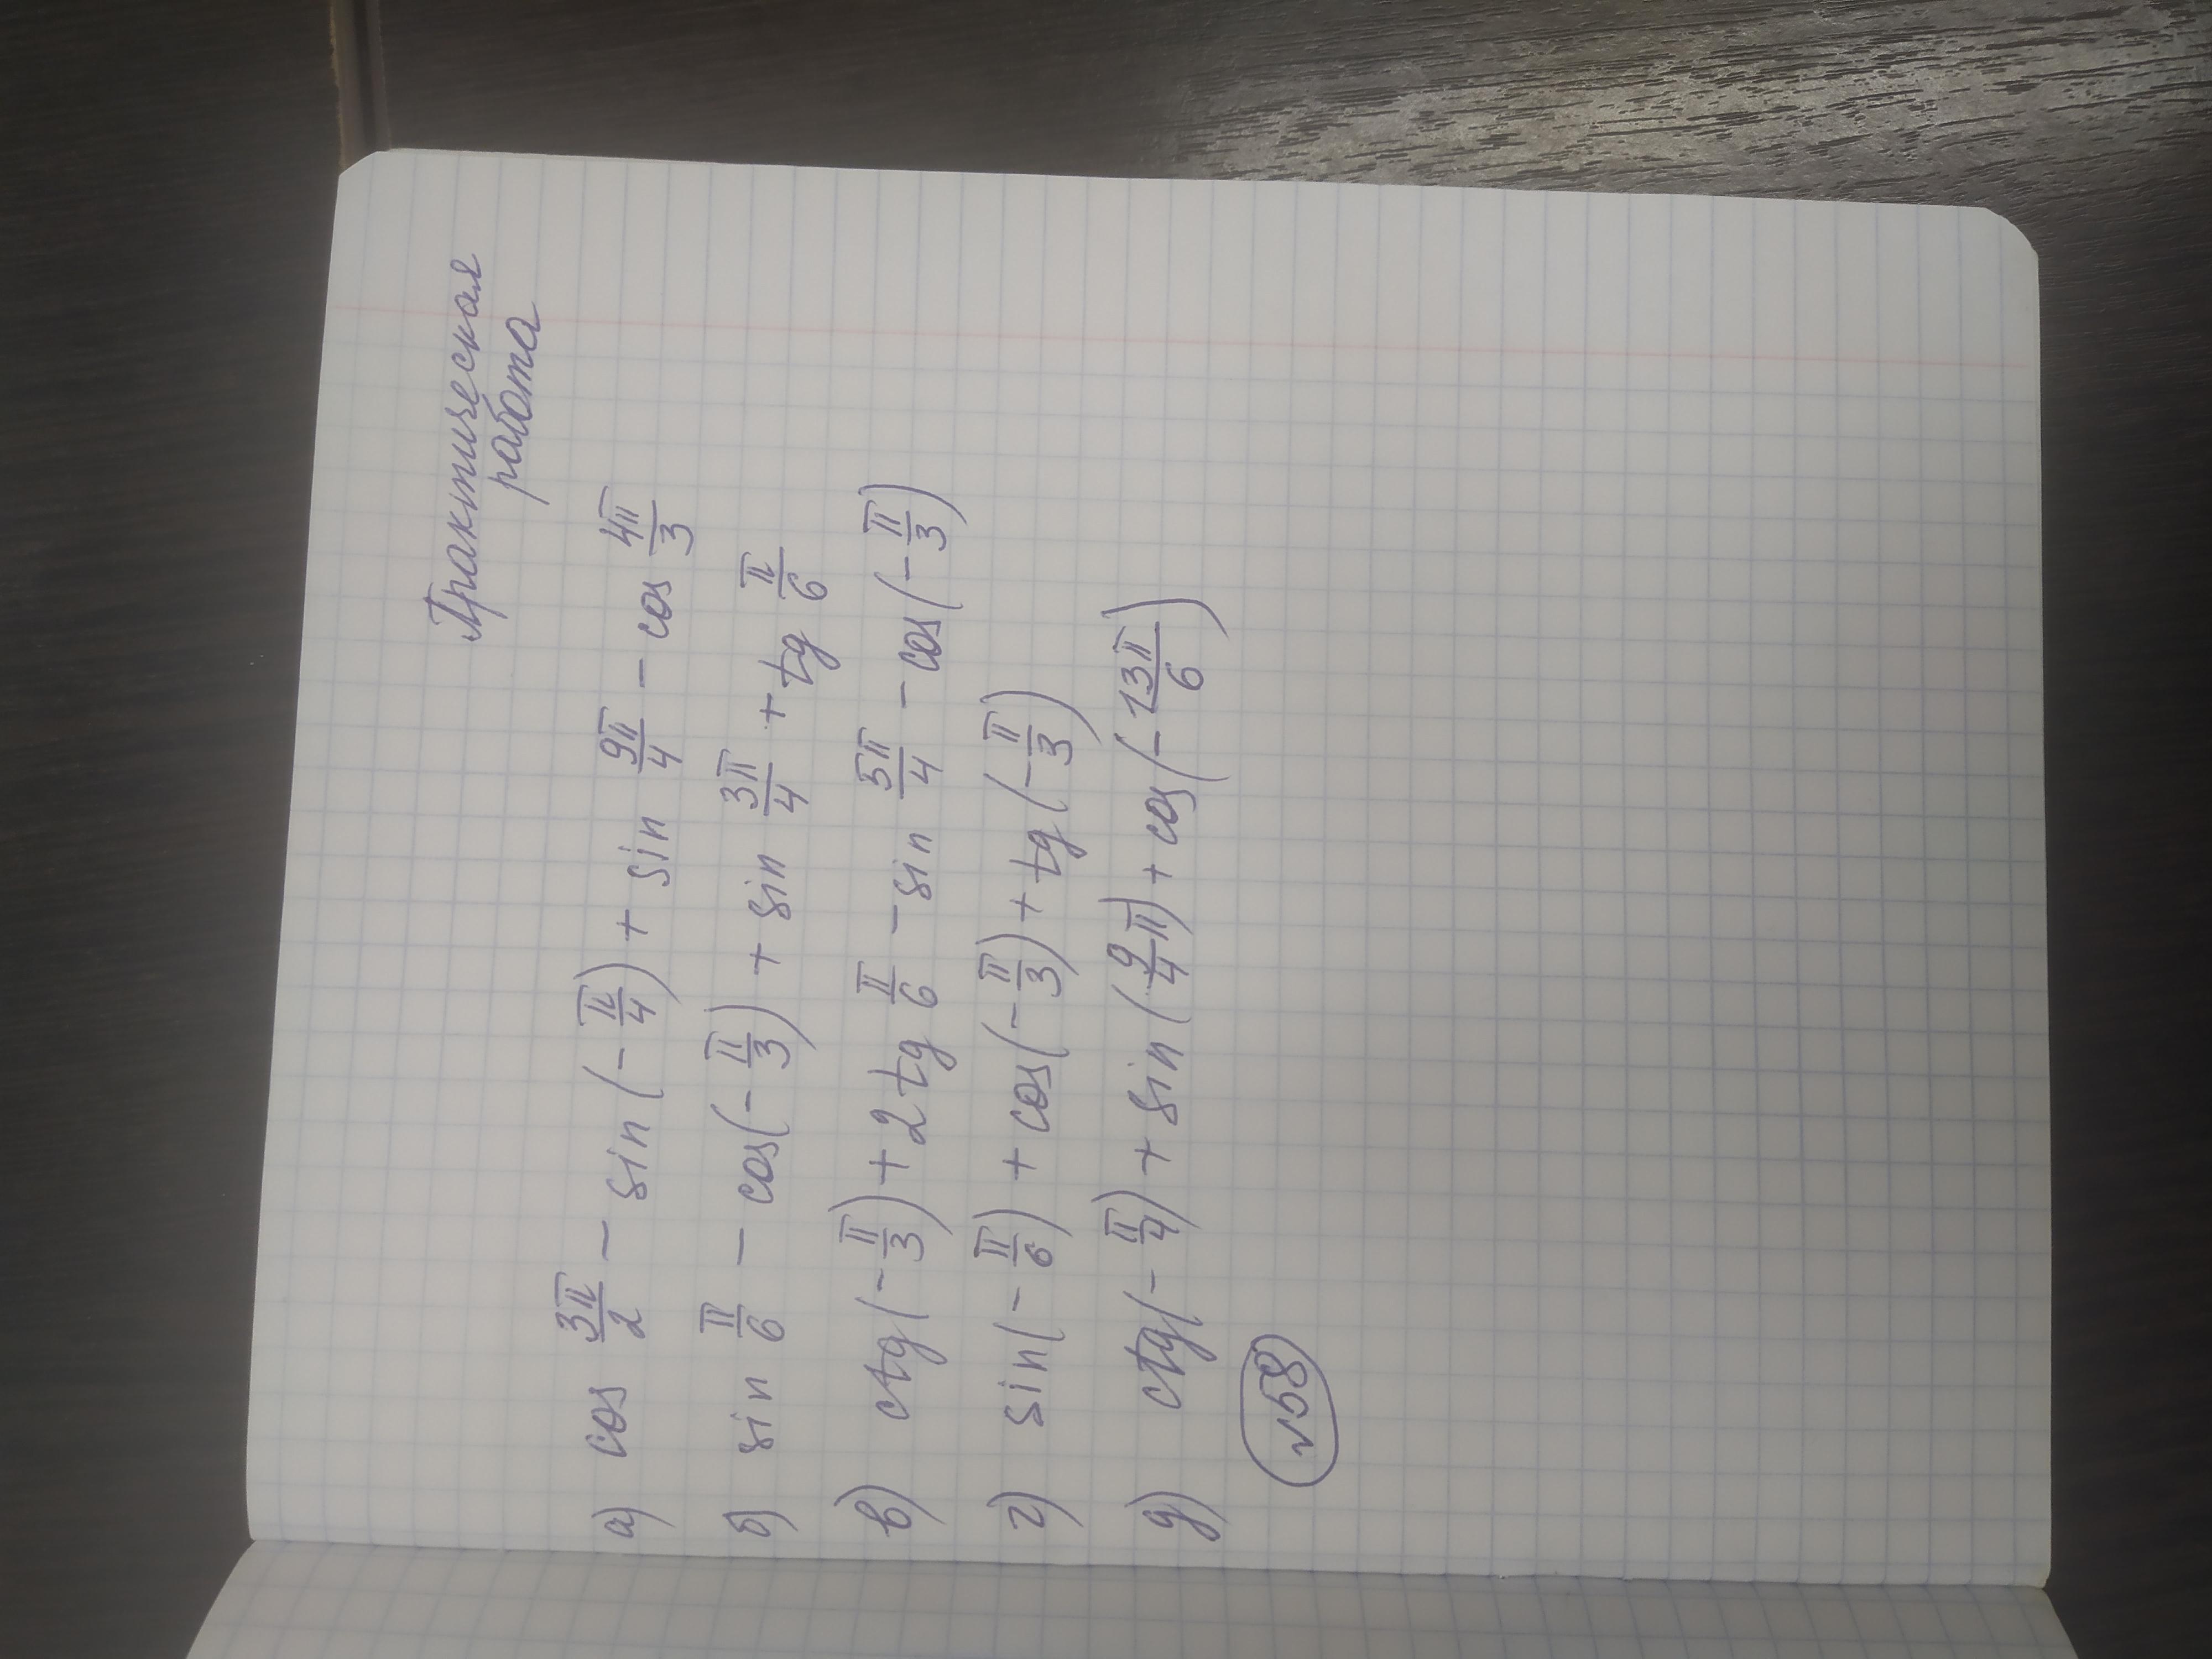 Практическая
работа
а) cos 3π/2 − sin(−π/4) + sin 9π/4 − cos 4π/3
б) sin π/6 − cos(−π/3) + sin 3π/4 + tg π/6
в) ctg(−π/3) + 2tg π/6 − sin 5π/4 − cos(−π/3)
г) sin(−π/6) + cos(−π/3) + tg(−π/3)
д) ctg(−π/4) + sin(9/4 π) + cos(−13π/6)
√58